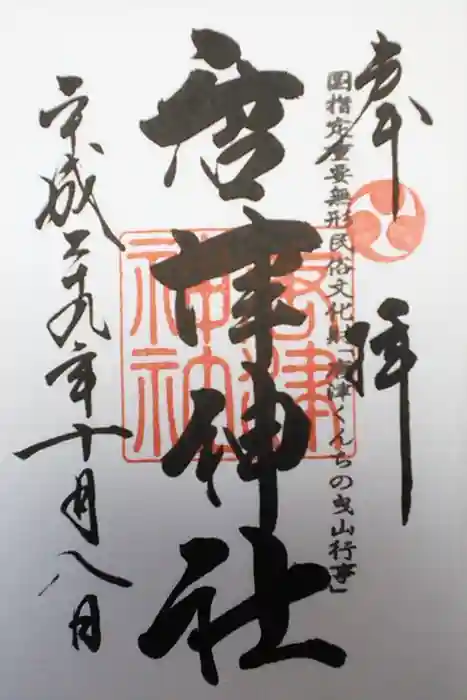 奉拝
国指定重要無形民俗文化財「唐津くんちの曳山行事」
唐津神社
唐津
神社
平成二十九年十月八日